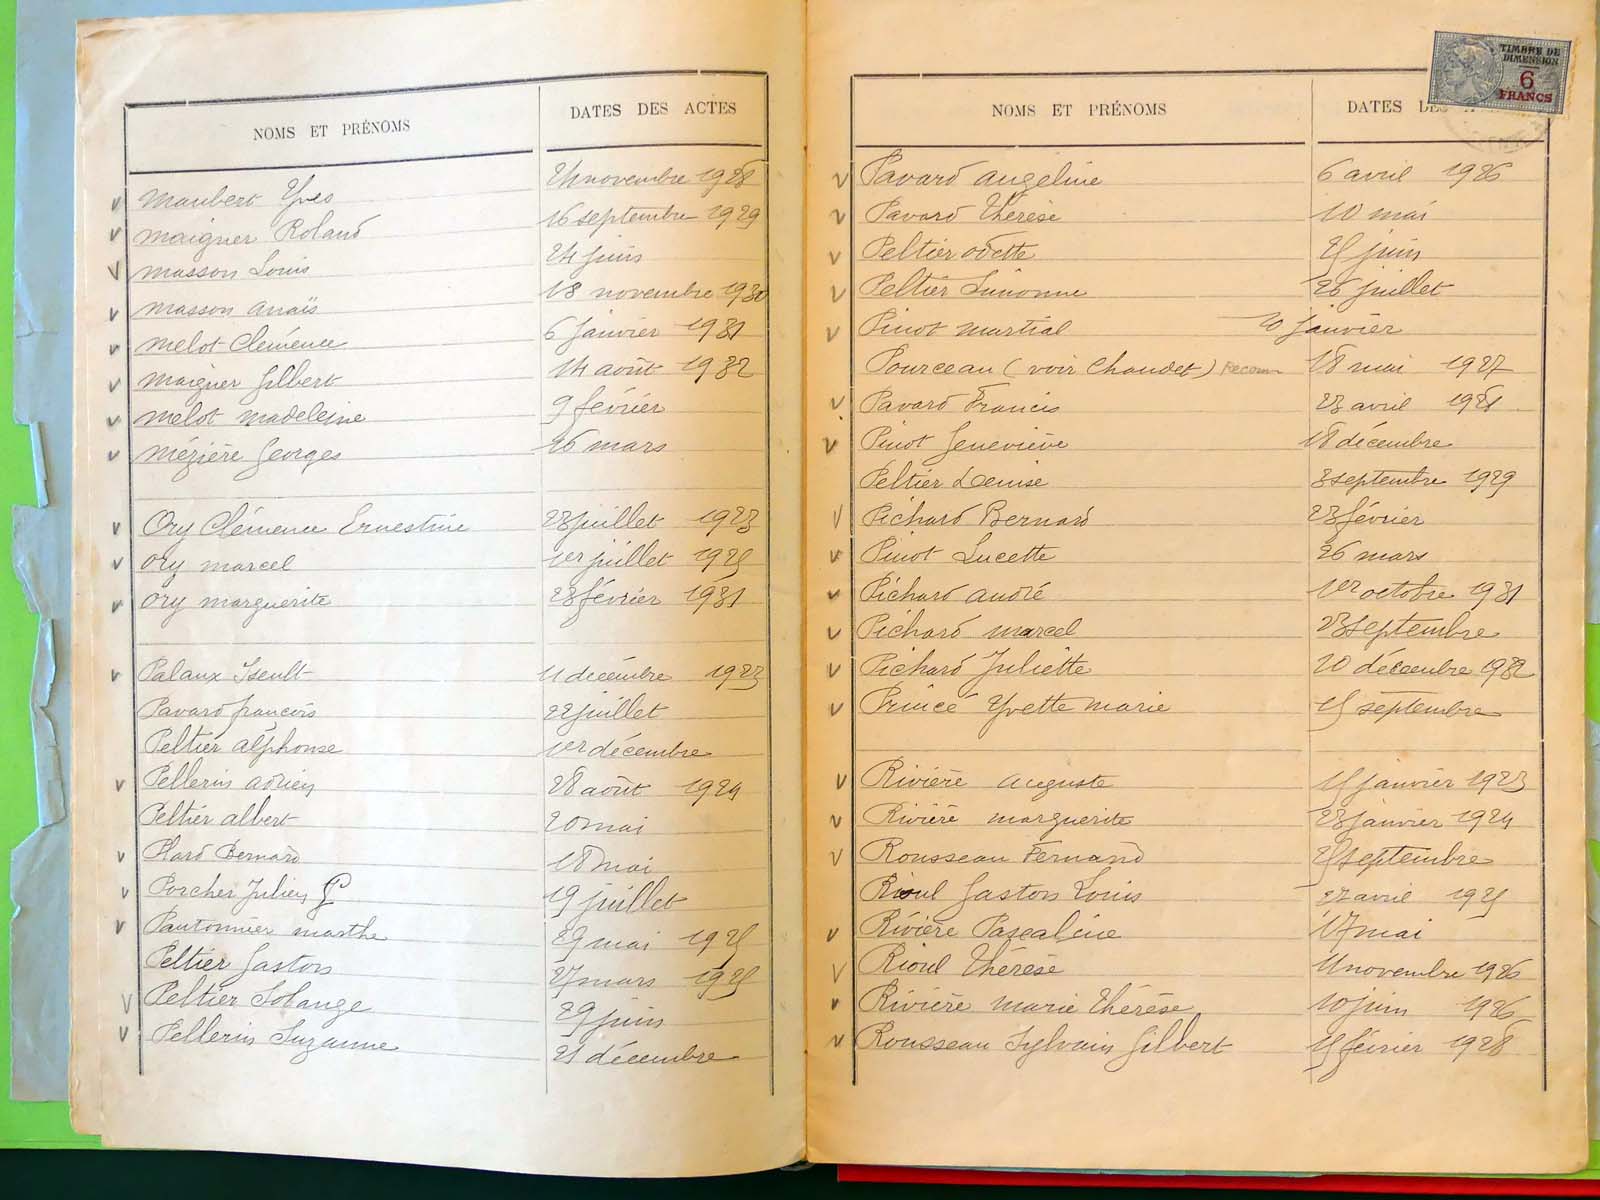 NOMS ET PRÉNOMS DATES DES ACTES
Maubert Yves 24 novembre 1928
Maigner Roland 16 septembre 1929
Masson Louis 24 juin
Masson Anaïs 18 novembre 1930
Melot Clémence 6 janvier 1931
Maigner Gilbert 14 août 1932
Melot Madeleine 9 février
Mézière Georges 16 mars
Ory Clémence Ernestine 23 juillet 1923
Ory Marcel 1er juillet 1925
Ory Marguerite 23 février 1931
Palaux Iseult 11 décembre 1923
Pavard François 22 juillet
Peltier Alphonse 1er décembre
Pellerin Adrien 28 août 1924
Peltier Albert 20 mai
Plard Bernard 18 mai
Porcher Julien P 19 juillet
Pautonnier Marthe 29 mai 1925
Peltier Gaston 27 mars 1925
Peltier Solange 29 juin
Pellerin Suzanne 21 décembre
NOMS ET PRÉNOMS DATES DES
TIMBRE DE
DIMENSION
6
FRANCS
Pavard Angéline 6 avril 1926
Pavard Thérèse 10 mai
Peltier Odette 25 juin
Peltier Simonne 26 juillet
Pinot Martial 20 janvier
Pourceau (voir Chaudet) Reconn 18 mai 1927
Pavard Francis 23 avril 1928
Pinot Geneviève 18 décembre
Peltier Denise 8 septembre 1929
Pichard Bernard 23 février
Pinot Lucette 26 mars
Pichard André 1er octobre 1931
Pichard Marcel 23 septembre
Pichard Juliette 20 décembre 1932
Princé Yvette Marie 15 septembre
Rivière Auguste 15 janvier 1923
Rivière Marguerite 23 janvier 1924
Rousseau Fernand 25 septembre
Rioul Gaston Louis 27 avril 1925
Rivière Pascaline 17 mai
Rioul Thérèse 11 novembre 1926
Rivière Marie Thérèse 10 juin 1926
Rousseau Sylvain Gilbert 15 février 1928